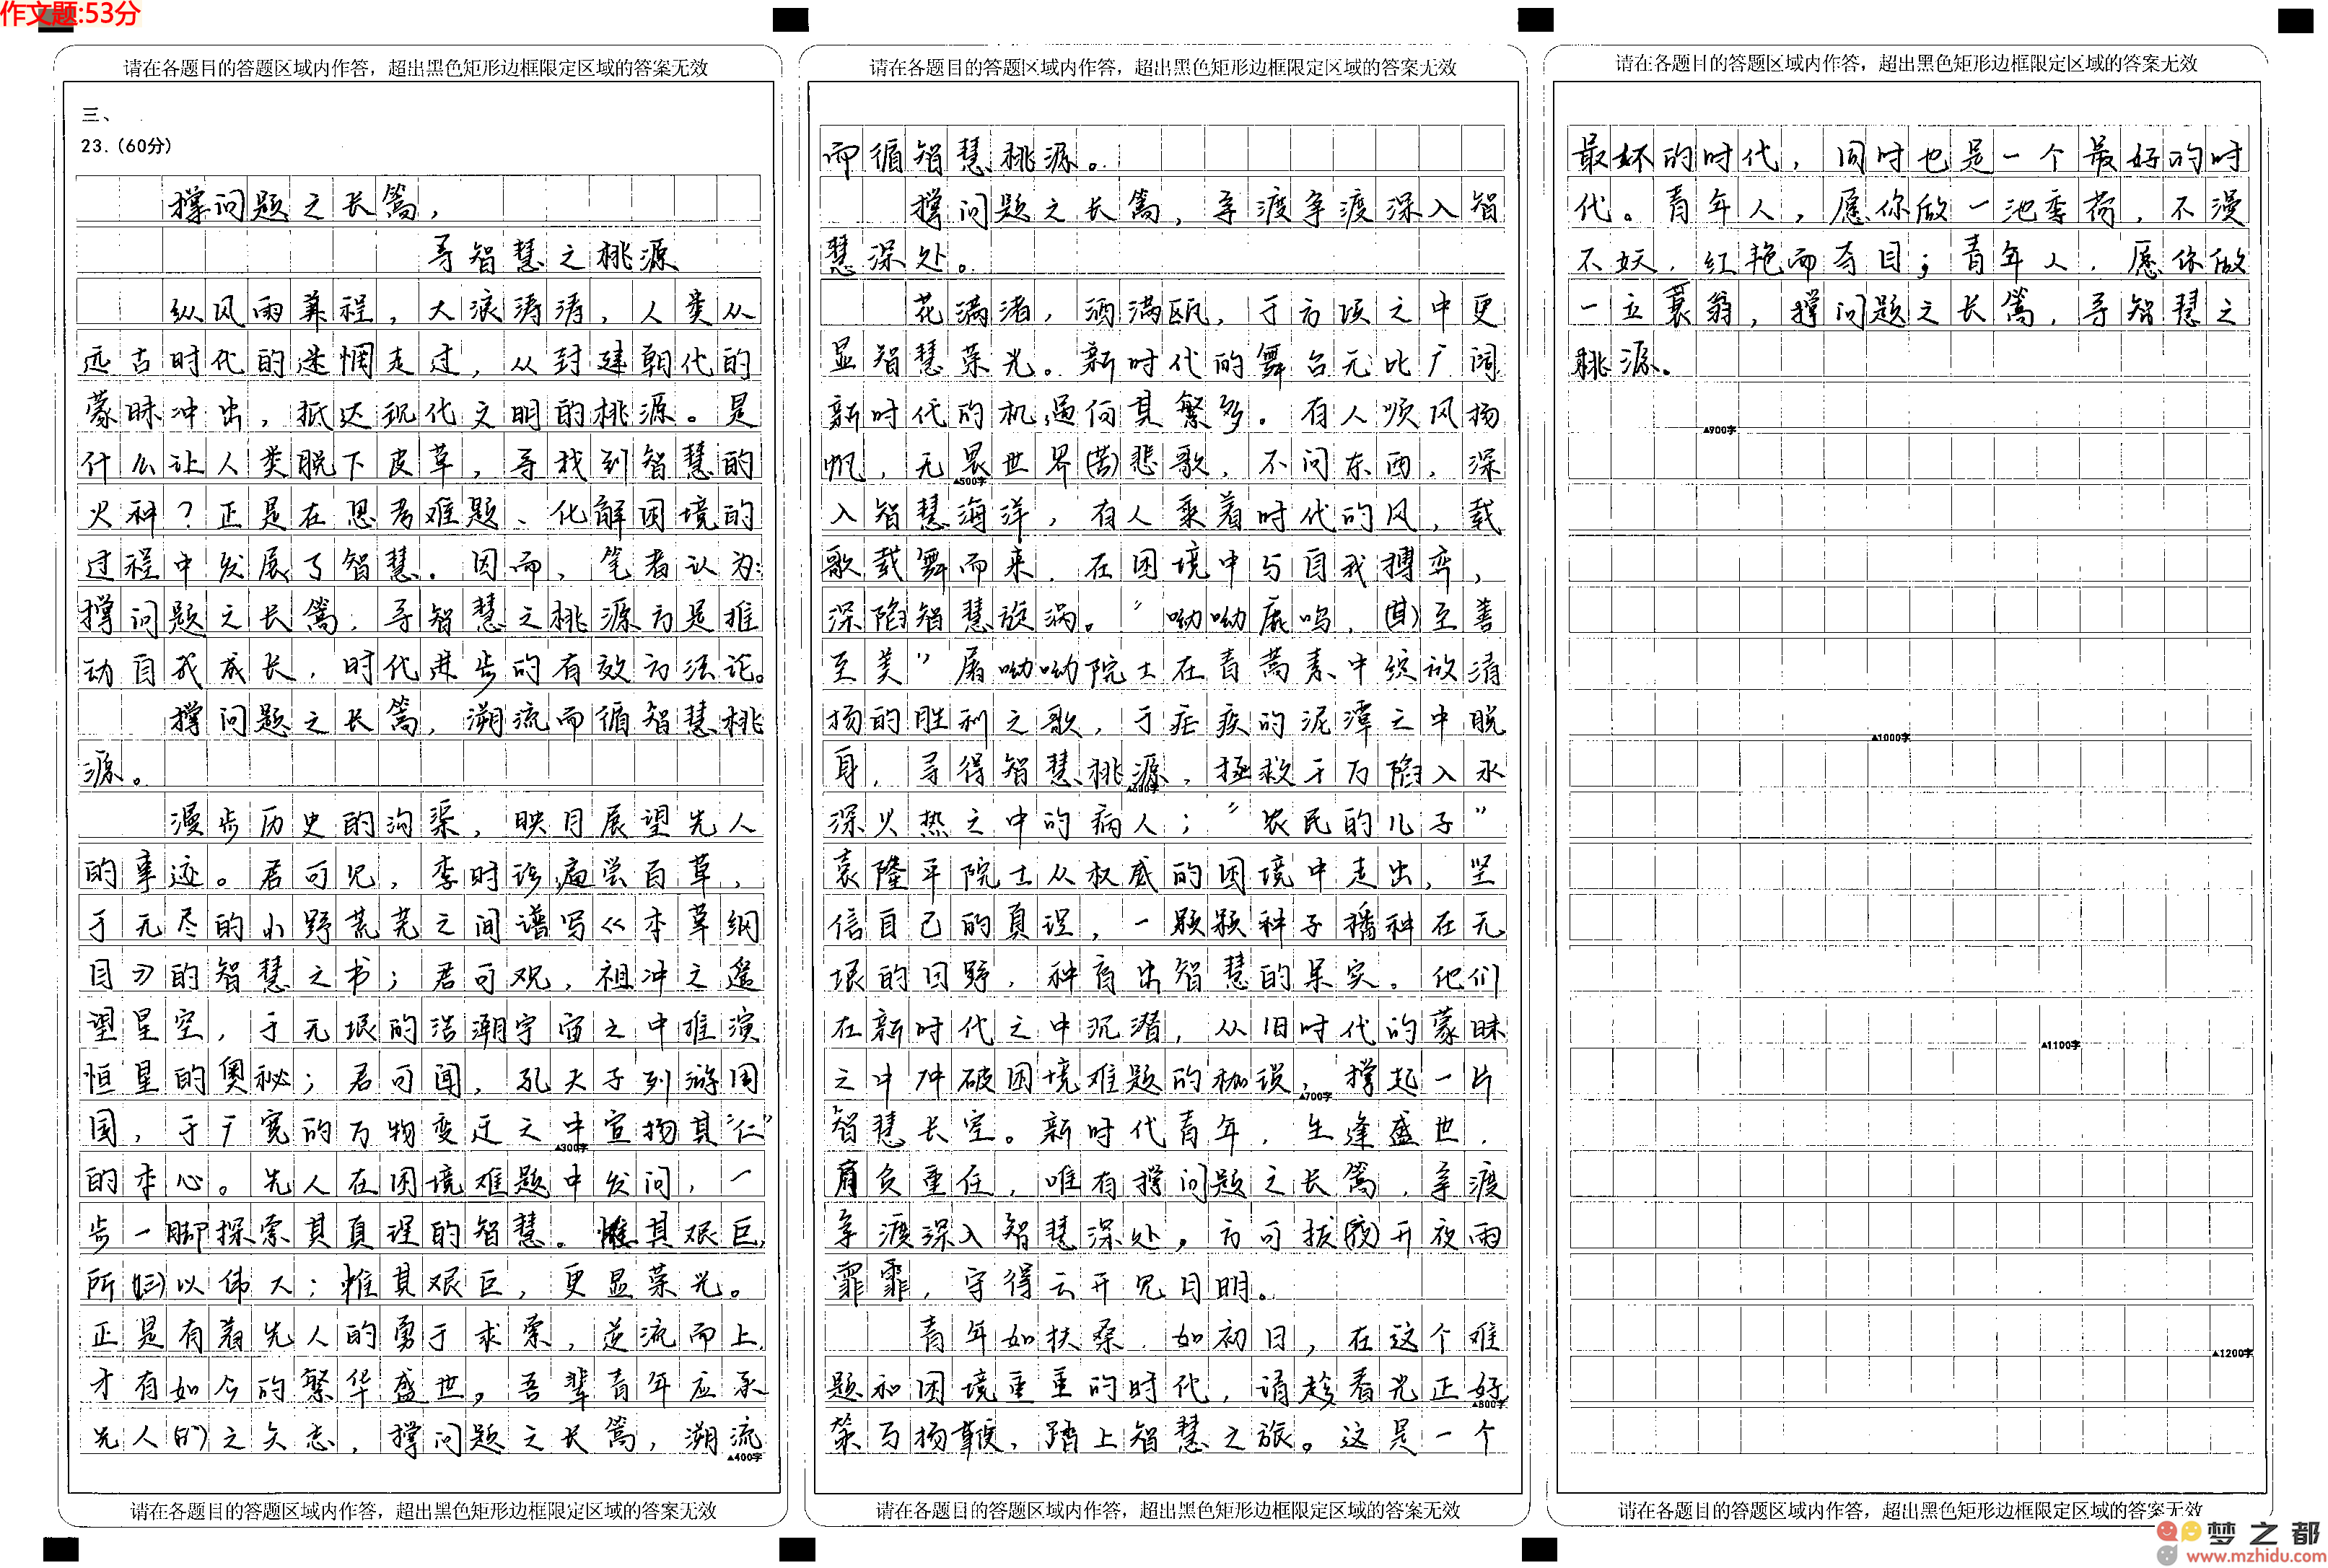 作文题:53分
请在各题目的答题区域内作答，超出黑色矩形边框限定区域的答案无效
三、
23.（60分）
撑问题之长篙，
寻智慧之桃源
纵风雨兼程，大浪涛涛，人类从
远古时代的迷惘走过，从封建朝代的
蒙昧冲出，抵达现代文明的桃源。是
什么让人类脱下皮草，寻找到智慧的
火种？正是在思考难题、化解困境的
过程中发展了智慧。因而，笔者认为：
撑问题之长篙，寻智慧之桃源方是推
动自我成长，时代进步的有效方法论。
撑问题之长篙，溯流而循智慧桃
源。
漫步历史的沟渠，映目展望先人
的事迹。君可见，李时珍遍尝百草，
于无尽的小野荒芜之间谱写《本草纲
目》的智慧之书；君可观，祖冲之遥
望星空，于无垠的浩潮宇宙之中推演
恒星的奥秘；君可闻，孔夫子列游周
国，于广宽的万物变迁之中宣扬其“仁”
▲300字
的本心。先人在困境难题中发问，一
步一脚探索其真理的智慧。惟其艰巨，
所以伟大；惟其艰巨，更显荣光。
正是有着先人的勇于求索，逆流而上，
才有如今的繁华盛世。吾辈青年应承
先人(的)之矢志，撑问题之长篙，溯流
▲400字
请在各题目的答题区域内作答，超出黑色矩形边框限定区域的答案无效
请在各题目的答题区域内作答，超出黑色矩形边框限定区域的答案无效
而循智慧桃源。
撑问题之长篙，争渡争渡深入智
慧深处。
花满渚，酒满瓯，于方顷之中更
显智慧荣光。新时代的舞台无比广阔
新时代的机遇何其繁多。有人顺风扬
帆，无畏世界(苦)悲歌，不问东西，深
▲500字
入智慧海洋，有人乘着时代的风，载
歌载舞而来，在困境中与自我搏弈，
深陷智慧旋涡。“呦呦鹿鸣，(甚)至善
至美”屠呦呦院士在青蒿素中绽放清
扬的胜利之歌，于疟疾的泥潭之中脱
身，寻得智慧桃源，拯救千万陷入水
▲600字
深火热之中的病人；“农民的儿子”
袁隆平院士从权威的困境中走出，坚
信自己的真理，一颗颗种子播种在无
垠的田野，种育出智慧的果实。他们
在新时代之中沉潜，从旧时代的蒙昧
之中冲破困境难题的枷锁，撑起一片
▲700字
智慧长空。新时代青年，生逢盛世，
肩负重任，唯有撑问题之长篙，争渡
争渡深入智慧深处，方可拨(夜)开夜雨
霏霏，守得云开见月明。
青年如扶桑，如初日，在这个难
题和困境重重的时代，请趁着光正好
▲800字
策马扬鞭，踏上智慧之旅。这是一个
请在各题目的答题区域内作答，超出黑色矩形边框限定区域的答案无效
请在各题目的答题区域内作答，超出黑色矩形边框限定区域的答案无效
最坏的时代，同时也是一个最好的时
代。青年人，愿你做一池季荷，不漫
不妖，红艳而夺目；青年人，愿你做
一立蓑翁，撑问题之长篙，寻智慧之
桃源。
▲900字
▲1000字
▲1100字
▲1200字
请在各题目的答题区域内作答，超出黑色矩形边框限定区域的答案无效
梦之都
www.mzhidu.com